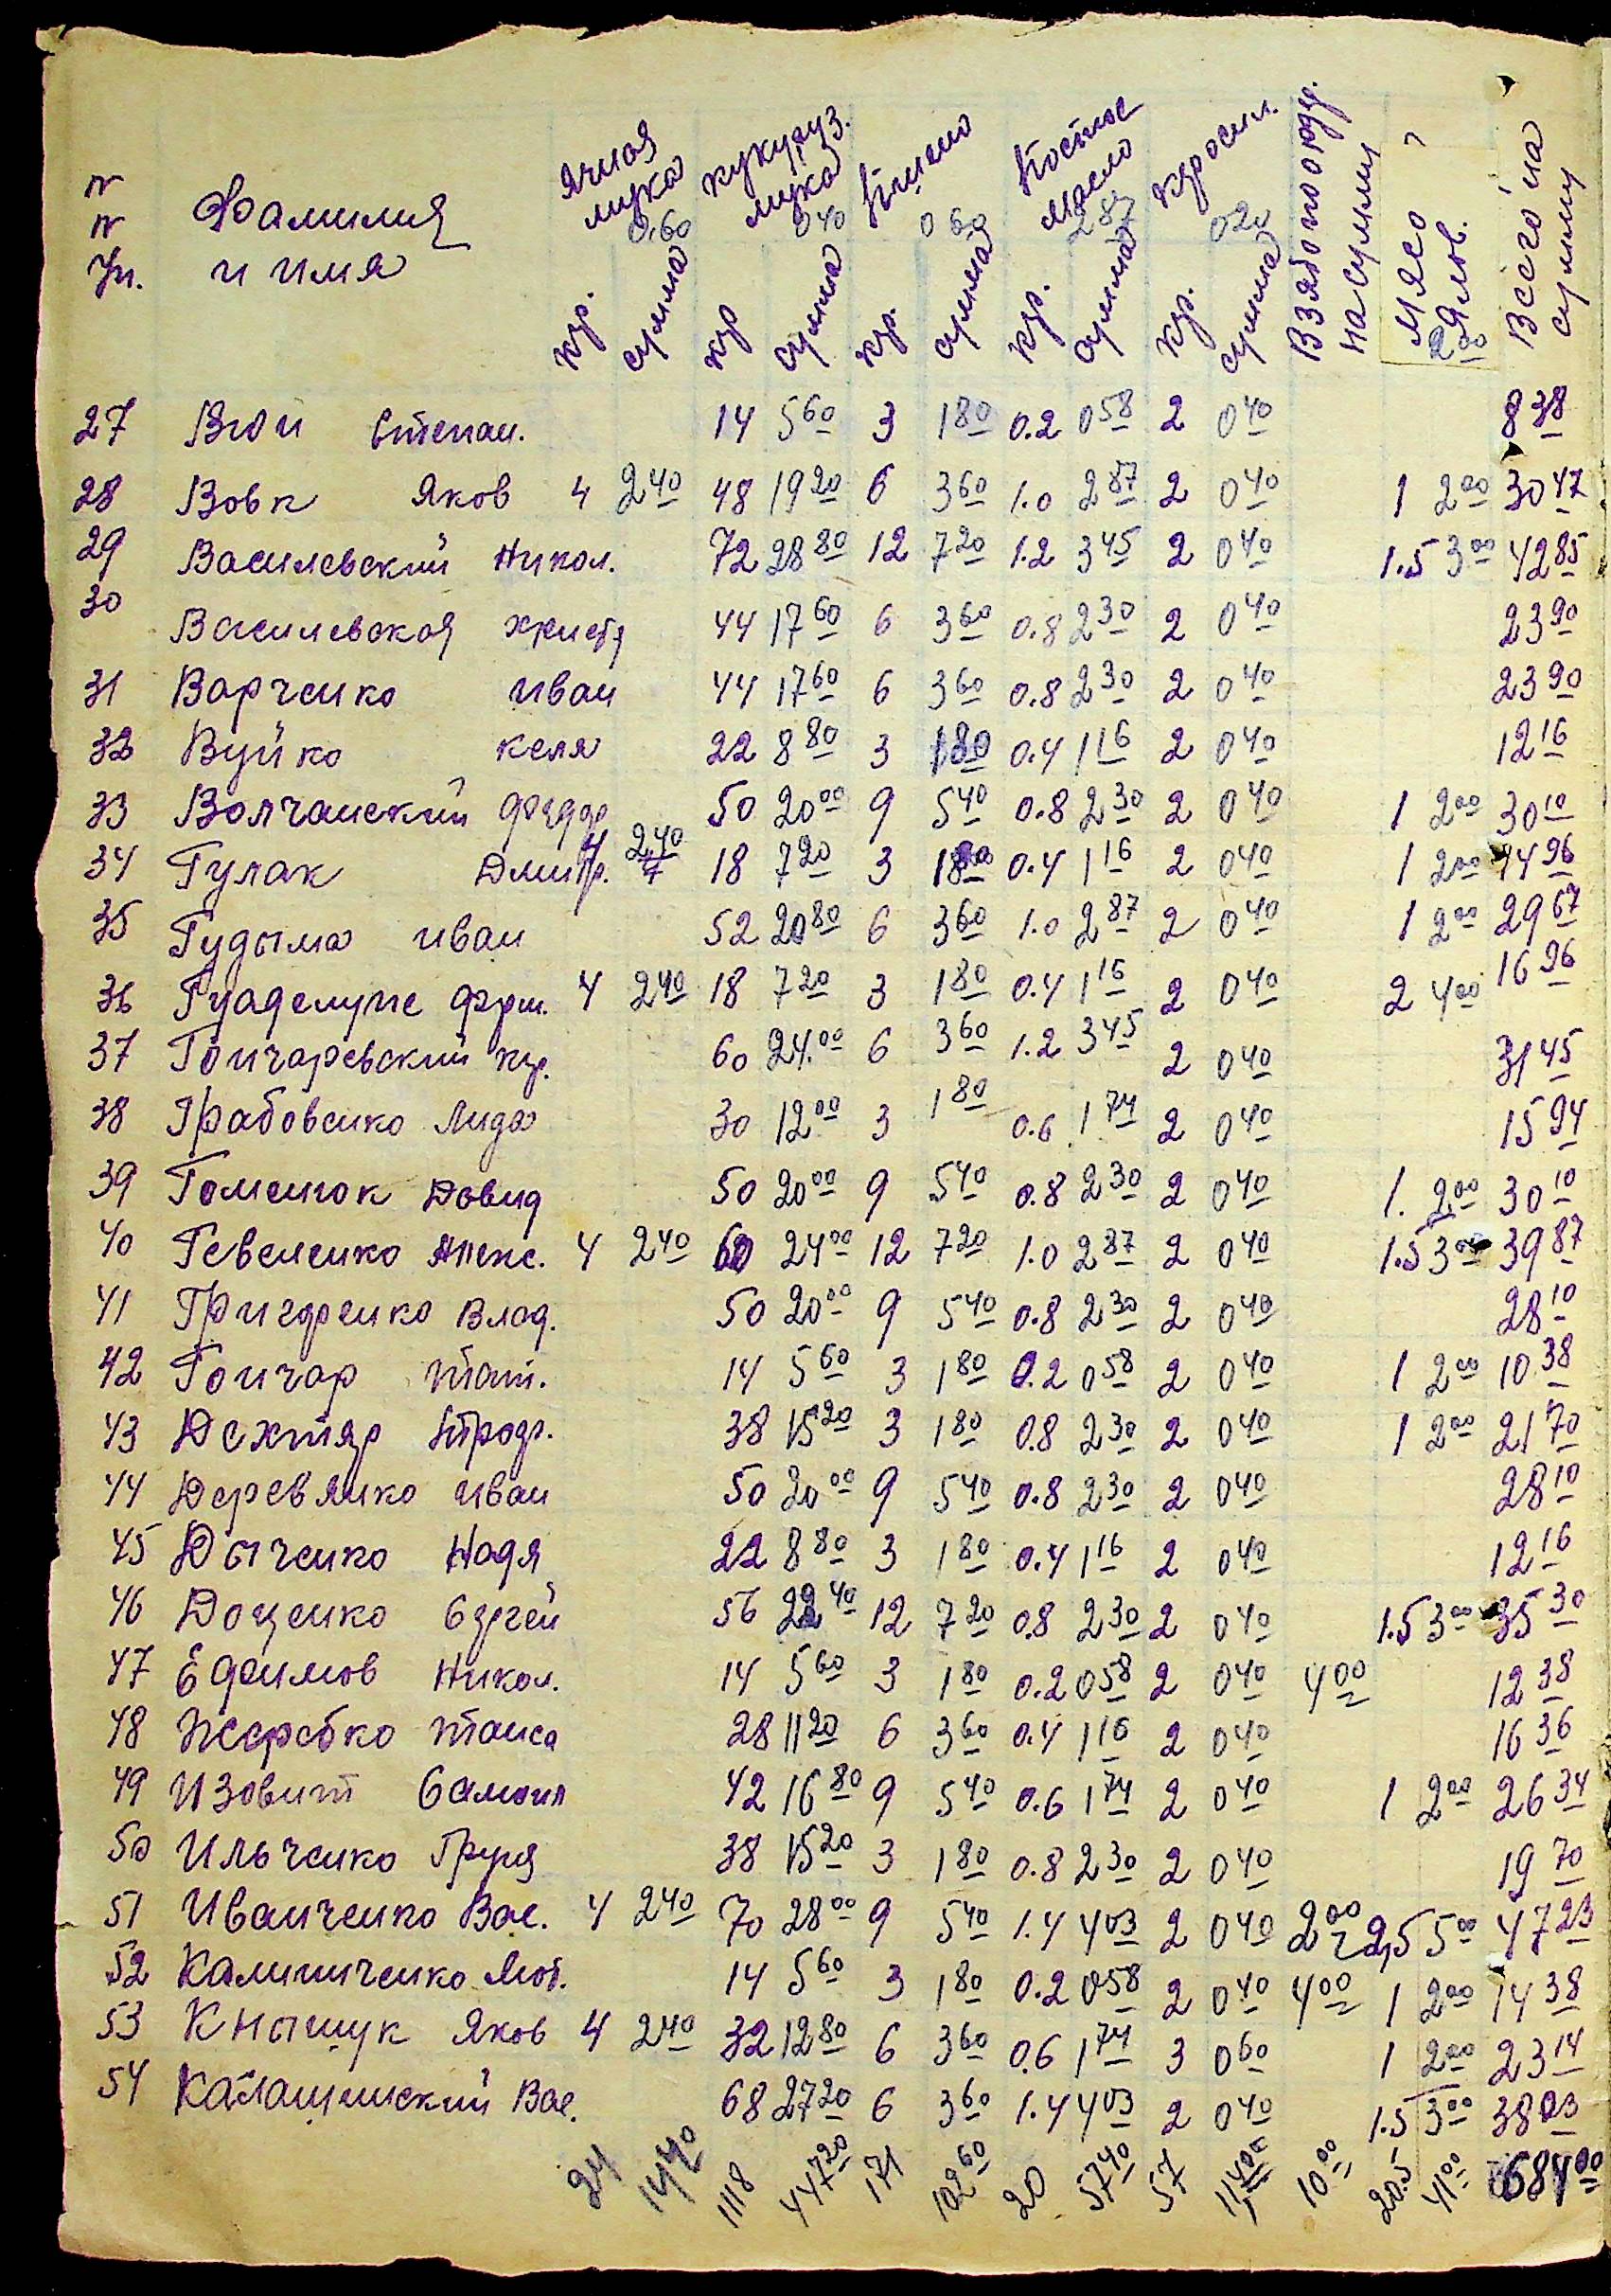 № Фамилия и имя ячная мука 0.60 кукуруз. мука 0 40 Пшено 0 60 Постное масло 2 87 керосин. 0 20 Взято продук. на сумму Мясо Ялов. 2 00 Всего на сумму
кгр. сумма кгр сумма кгр. сумма кгр. сумма кгр. сумма
27 Вюн Степан. 14 5 60 3 1 80 0.2 0 58 2 0 40 8 38
28 Вовк Яков 4 2 40 48 19 20 6 3 60 1.0 2 87 2 0 40 1 2 00 30 47
29 Василевский Никол. 72 28 80 12 7 20 1.2 3 45 2 0 40 1.5 3 00 42 85
30 Василевская христя 44 17 60 6 3 60 0.8 2 30 2 0 40 23 90
31 Варченко иван 44 17 60 6 3 60 0.8 2 30 2 0 40 23 90
32 Вуйко келя 22 8 80 3 1 80 0.4 1 16 2 0 40 12 16
33 Волчанский федор 50 20 00 9 5 40 0.8 2 30 2 0 40 1 2 00 30 10
34 Гулак Дмитр. 4 2,40 18 7 20 3 1 80 0.4 1 16 2 0 40 1 2 00 14 96
35 Гудыма иван 52 20 80 6 3 60 1.0 2 87 2 0 40 1 2 00 29 67
36 Гуаделупе фрш. 4 2 40 18 7 20 3 1 80 0.4 1 16 2 0 40 2 4 00 16 96
37 Гончаревский кр. 60 24.00 6 3 60 1.2 3 45 2 0 40 31 45
38 Грабовенко Лида 30 12 00 3 1 80 0.6 1 74 2 0 40 15 94
39 Гоменюк Давид 50 20 00 9 5 40 0.8 2 30 2 0 40 1. 2.00 30 10
40 Гевеленко Алекс. 4 2 40 60 24 00 12 7 20 1.0 2 87 2 0 40 1.5 3 00 39 87
41 Григоренко Влад. 50 20 00 9 5 40 0.8 2 30 2 0 40 28 10
42 Гончар тат. 14 5 60 3 1 80 0.2 0 58 2 0 40 1 2 00 10 38
43 Дехтяр 38 15 20 3 1 80 0.8 2 30 2 0 40 1 2 00 21 70
44 Деревянко иван 50 20 00 9 5 40 0.8 2 30 2 0 40 28 10
45 Дыченко Надя 22 8 80 3 1 80 0.4 1 16 2 0 40 12 16
46 Доценко Сергей 56 22 40 12 7 20 0.8 2 30 2 0 40 1.5 3 00 35 30
47 Ефимов Никол. 14 5 60 3 1 80 0.2 0 58 2 0 40 4 00 12 38
48 Жеребко таиса 28 11 20 6 3 60 0.4 1 16 2 0 40 16 36
49 Изовит Самоил 42 16 80 9 5 40 0.6 1 74 2 0 40 1 2 00 26 34
50 Ильченко Груня 38 15 20 3 1 80 0.8 2 30 2 0 40 19 70
51 Иванченко Вас. 4 2 40 70 28 00 9 5 40 1.4 4 03 2 0 40 2 00 2,5 5 00 47 23
52 Калиниченко Люб. 14 5 60 3 1 80 0.2 0 58 2 0 40 4 00 1 2 00 14 38
53 Кнышук Яков 4 2 40 32 12 80 6 3 60 0.6 1 74 3 0 60 1 2 00 23 14
54 Калашинский Вас. 68 27 20 6 3 60 1.4 4 03 2 0 40 1.5 3 00 38 23
24 14 40 1118 447 20 171 102 60 20 57 40 57 11 40 10 00 20.5 41 00 684 00